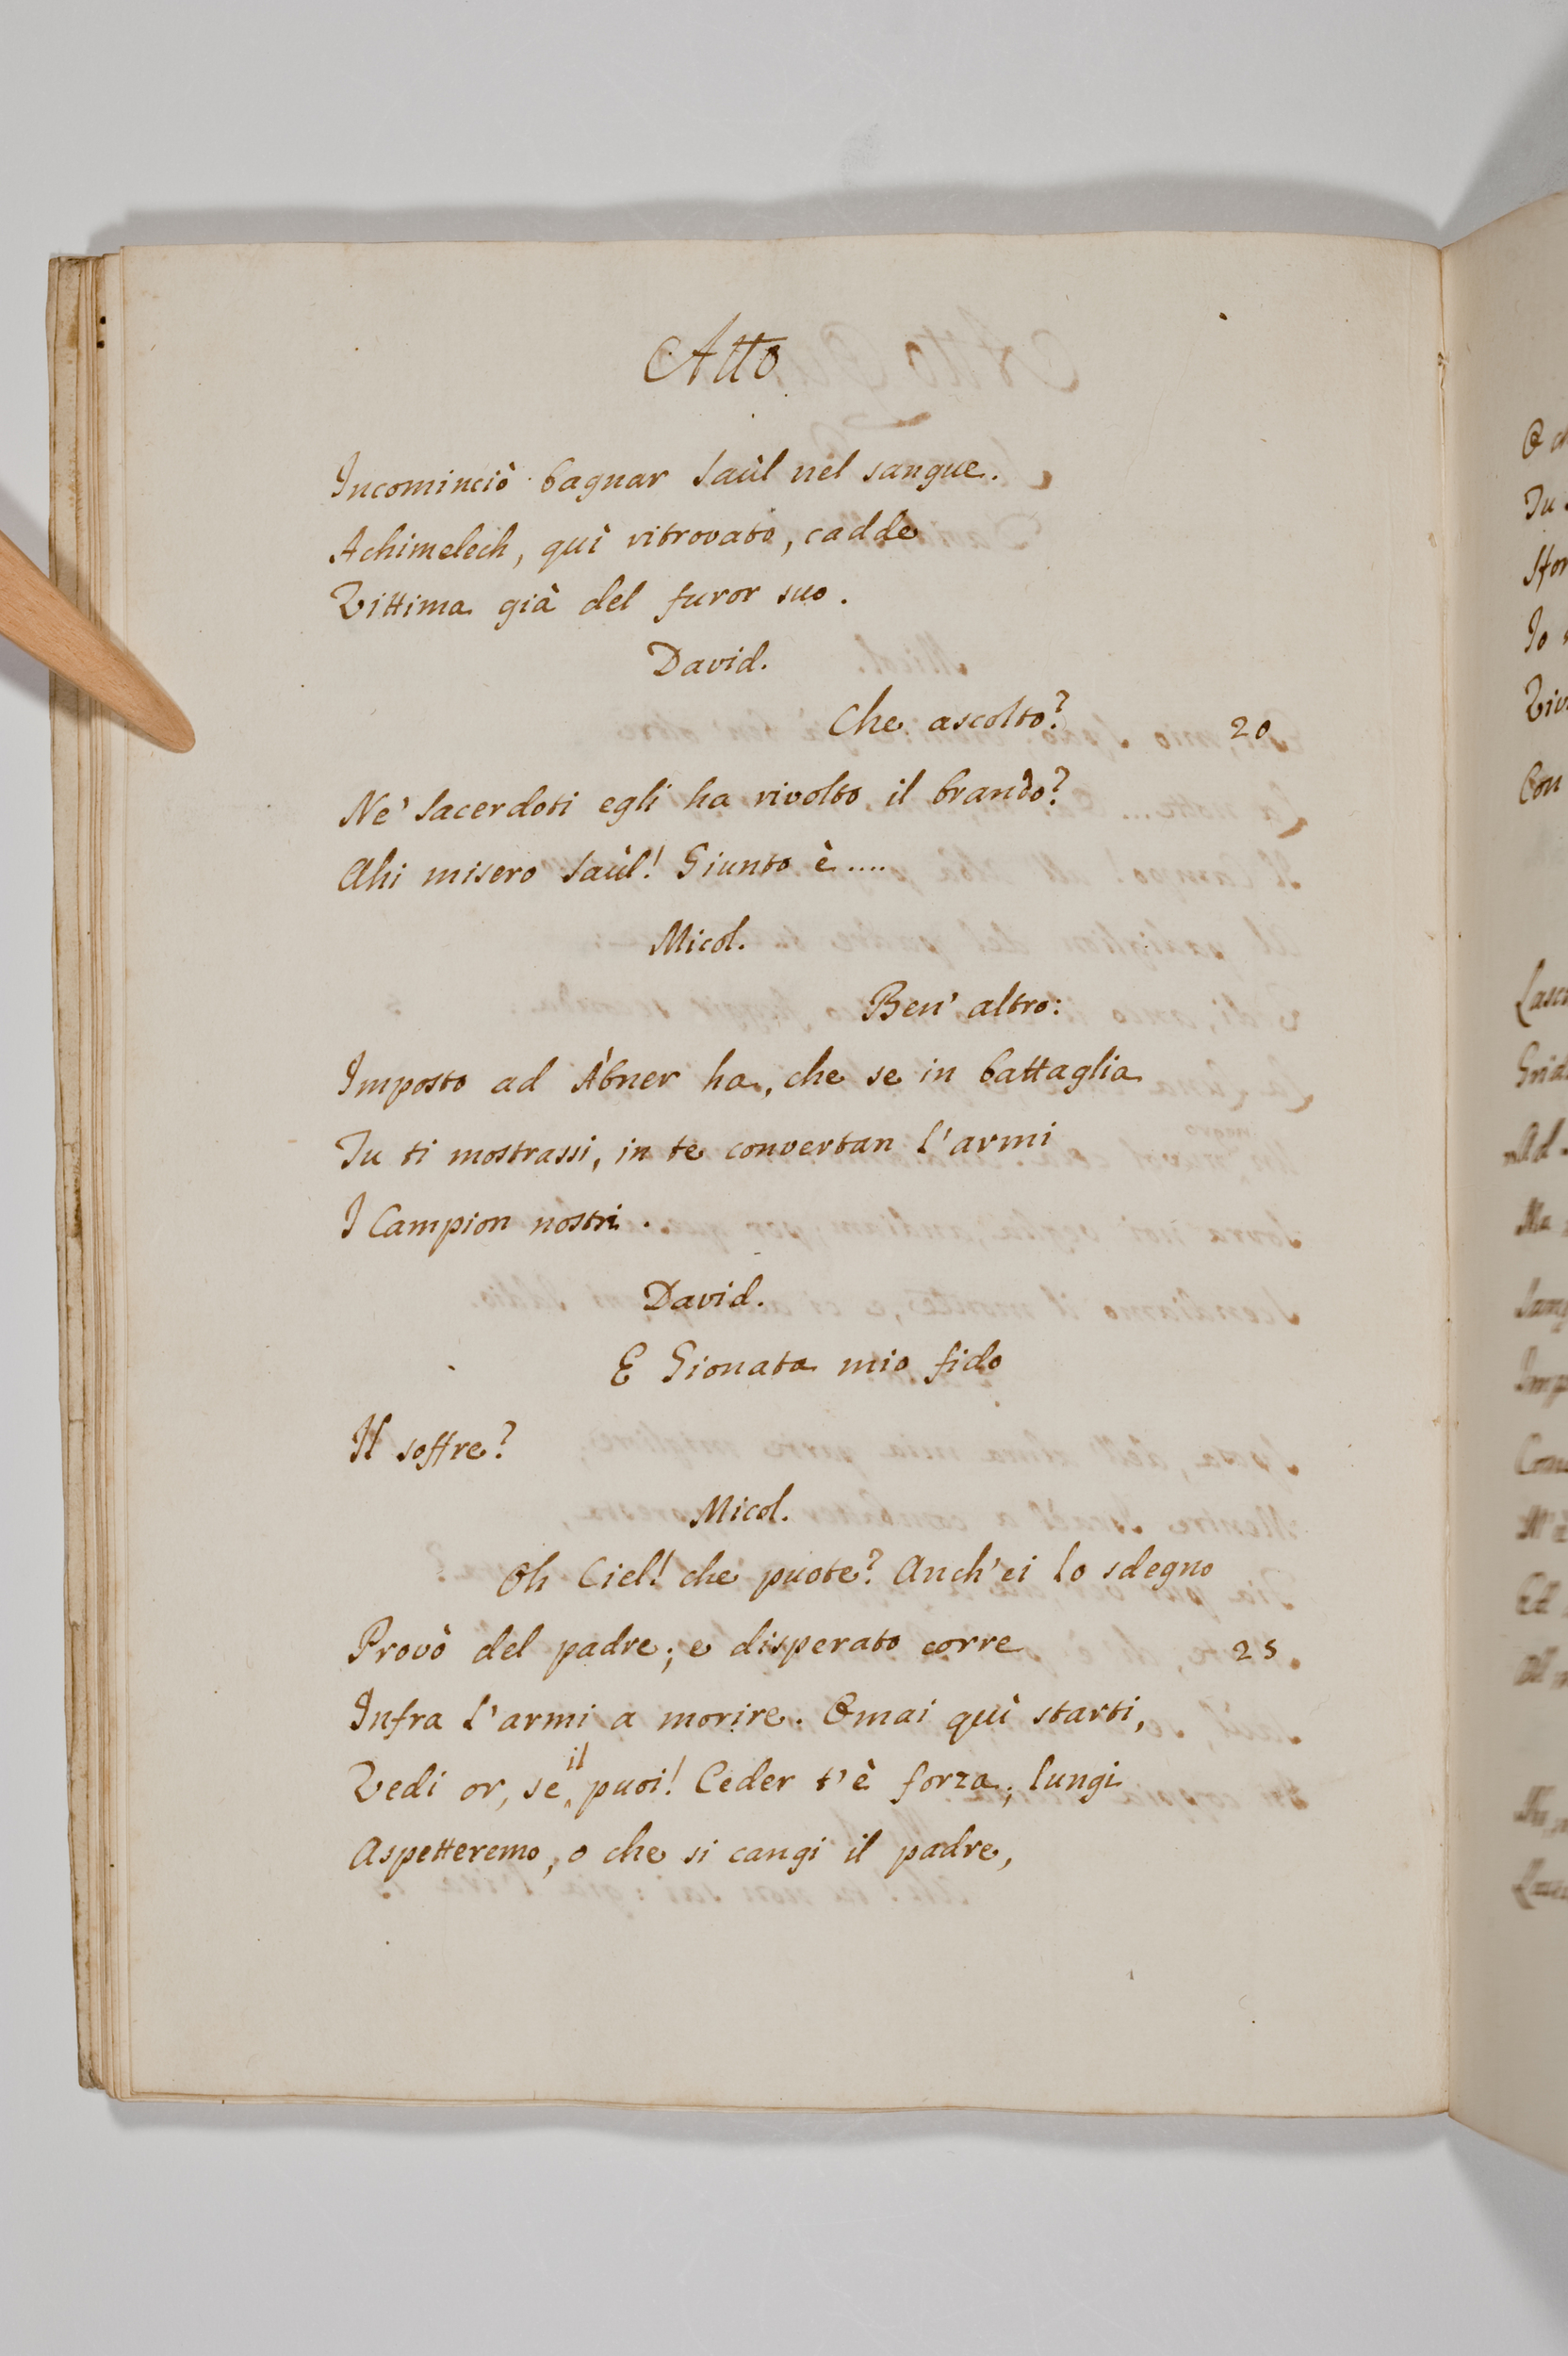 Atto
Incominciò bagnar Saùl nel sangue.
Achimelech, quì ritrovato, cadde
Vittima già del furor suo.
David.
Che ascolto? 20
Ne' Sacerdoti egli ha rivolto il brando?
Ahi misero Saùl! Giunto è....
Micol.
Ben' altro:
Imposto ad Àbner ha, che se in battaglia
Tu ti mostrassi, in te convertan l'armi
I Campion nostri.
David.
E Gionata mio fido
Il soffre?
Micol.
Oh Ciel! che puote? Anch'ei lo sdegno
Provò del padre; e disperato corre 25
Infra l'armi a morire. Omai quì starti,
Vedi or, se il puoi! Ceder t'è forza; lungi
Aspetteremo, o che si cangi il padre,